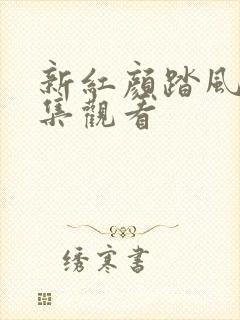 新紅顔踏風
集觀看
绣寒書